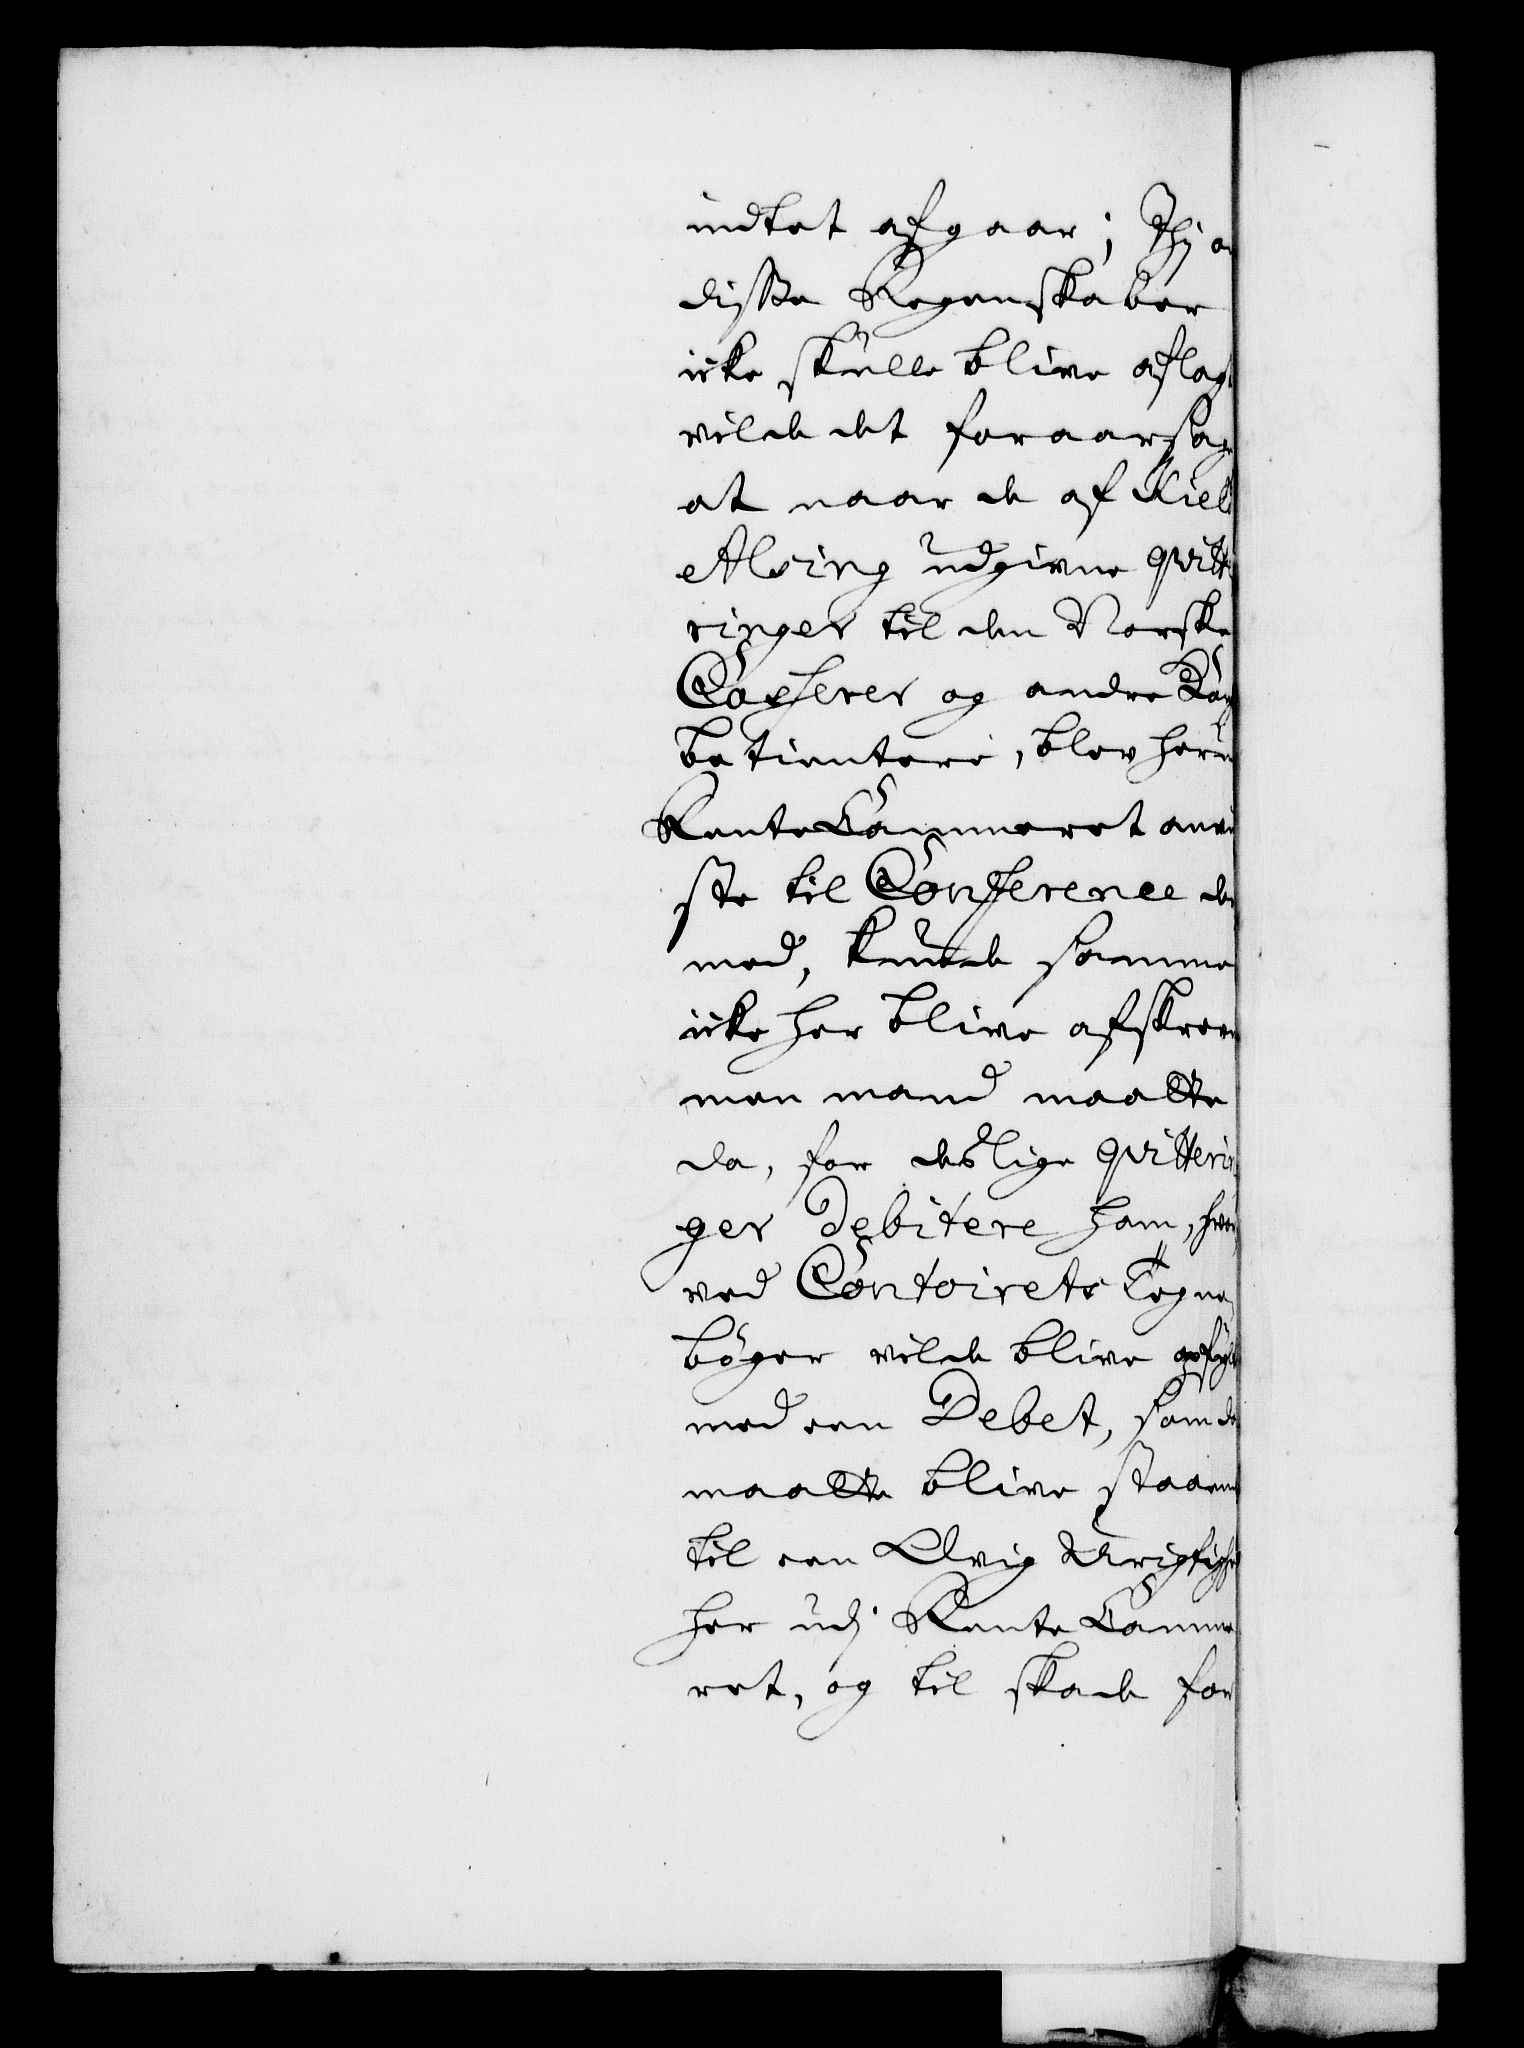 indtet afgaar; Thj om
disse Regenskaber
icke skulle blive aflagt
vilde det foraarsage
at naar de af Kield
Alsing udgivne qvitte
ringer til den Norske
Casserer og andre
betientere, blev her udj
RenteCammeret anvi
ste til Conference der
med, kunde samme
icke her blive afskreven
men mand maatte
da, for deslige qvitterin
ger Debitere ham, hvor
ved Contoirets Tegne
bøger vilde blive opfylt
med een Debet, som der
maatte blive staaende
til een Elvig Urigtighed
her udj Rente Camme
ret, og til skade for